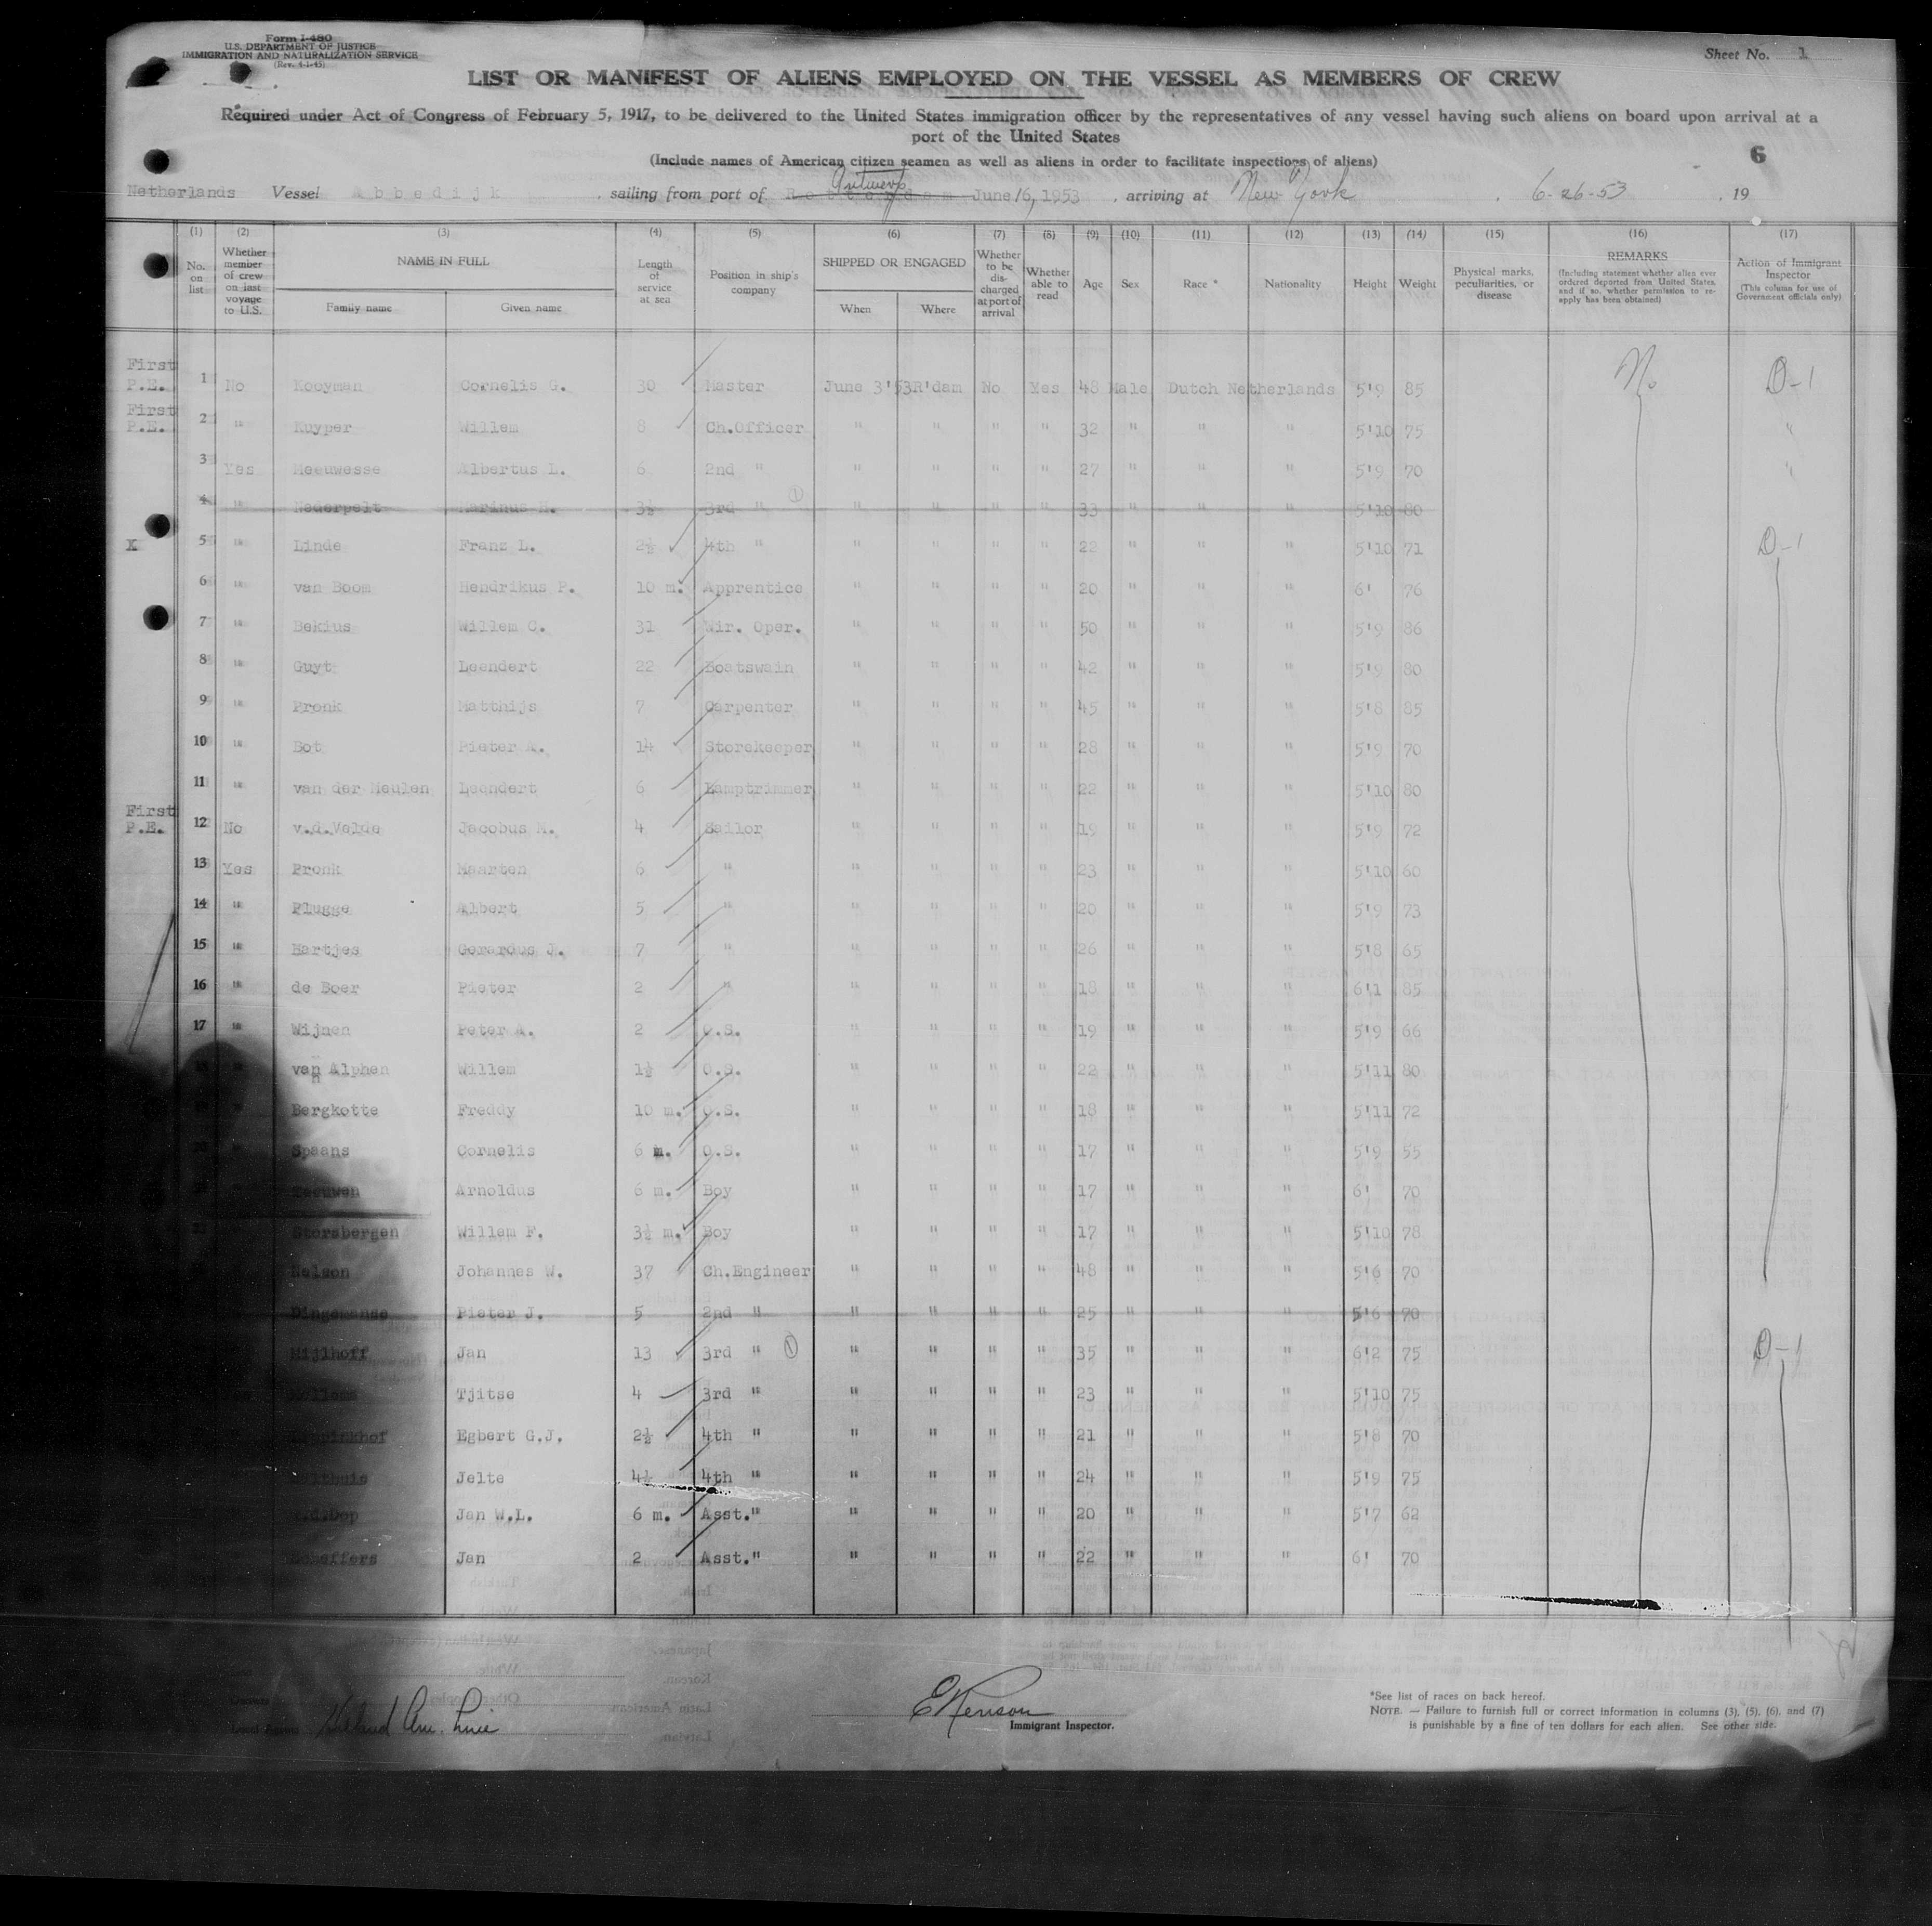 Form I-480
U.S. DEPARTMENT OF JUSTICE
IMMIGRATION AND NATURALIZATION SERVICE
(Rev. 4-1-45)
Sheet No. 1
LIST OR MANIFEST OF ALIENS EMPLOYED ON THE VESSEL AS MEMBERS OF CREW
Required under Act of Congress of February 5, 1917, to be delivered to the United States immigration officer by the representatives of any vessel having such aliens on board upon arrival at a
port of the United States
(Include names of American citizen seamen as well as aliens in order to facilitate inspections of aliens)
6
Antwerp
Netherlands Vessel Abbedijk , sailing from port of Rotterdam June 16, 1953 , arriving at New York , 6-26-53 , 19
(1) (2) (3) (4) (5) (6) (7) (8) (9) (10) (11) (12) (13) (14) (15) (16) (17)
No. on list
Whether member of crew on last voyage to U.S.
NAME IN FULL
Family name Given name
Length of service at sea
Position in ship's company
SHIPPED OR ENGAGED
When Where
Whether to be discharged at port of arrival
Whether able to read
Age Sex Race * Nationality Height Weight
Physical marks, peculiarities, or disease
REMARKS
(Including statement whether alien ever ordered deported from United States, and if so, whether permission to reapply has been obtained)
Action of Immigrant Inspector
(This column for use of Government officials only)
First P.E. 1 No Kooyman Cornelis G. 30 Master June 3'53 R'dam No Yes 48 Male Dutch Netherlands 5'9 85 No D-1
First P.E. 2 " Kuyper Willem 8 Ch.Officer " " " " 32 " " " 5'10 75 "
3 Yes Meeuwesse Albertus L. 6 2nd " " " " " 27 " " " 5'9 70 "
4 " Nederpelt Marinus H. 3½ 3rd " 1 " " " " 33 " " " 5'10 80
X 5 " Linde Frans L. 2½ 4th " " " " " 22 " " " 5'10 71 D-1
6 " van Boom Hendrikus P. 10 m. Apprentice " " " " 20 " " " 6' 76
7 " Bekius Willem C. 31 Wir. Oper. " " " " 50 " " " 5'9 86
8 " Guyt Leendert 22 Boatswain " " " " 42 " " " 5'9 80
9 " Pronk Matthijs 7 Carpenter " " " " 45 " " " 5'8 85
10 " Bot Pieter A. 14 Storekeeper " " " " 28 " " " 5'9 70
11 " van der Meulen Leendert 6 Lamptrimmer " " " " 22 " " " 5'10 80
First P.E. 12 No v.d.Velde Jacobus M. 4 Sailor " " " " 19 " " " 5'9 72
13 Yes Pronk Maarten 6 " " " " " 23 " " " 5'10 60
14 " Plugge Albert 5 " " " " " 20 " " " 5'9 73
15 " Hartjes Gerardus J. 7 " " " " " 26 " " " 5'8 65
16 " de Boer Pieter 2 " " " " " 18 " " " 6'1 85
17 " Wijnen Peter A. 2 O.S. " " " " 19 " " " 5'9 66
van Alphen Willem 1½ O.S. " " " " 22 " " " 5'11 80
Bergkotte Freddy 10 m. O.S. " " " " 18 " " " 5'11 72
Spaans Cornelis 6 m. O.S. " " " " 17 " " " 5'9 55
Teeuwen Arnoldus 6 m. Boy " " " " 17 " " " 6' 70
Storsbergen Willem F. 3½ m. Boy " " " " 17 " " " 5'10 78
Nelson Johannes W. 37 Ch.Engineer " " " " 48 " " " 5'6 70
Dingemanse Pieter J. 5 2nd " " " " " 25 " " " 5'6 70
Mijlhoff Jan 13 3rd " 1 " " " " 35 " " " 6'2 75 D-1
Tjitse 4 3rd " " " " " 23 " " " 5'10 75
Egbert G.J. 2½ 4th " " " " " 21 " " " 5'8 70
Jelte 4½ 4th " " " " " 24 " " " 5'9 75
v.d.Dop Jan W.L. 6 m. Asst." " " " " 20 " " " 5'7 62
Jan 2 Asst." " " " " 22 " " " 6' 70
Owners
Local Agents Holland Am. Line
Immigrant Inspector.
*See list of races on back hereof.
NOTE. — Failure to furnish full or correct information in columns (3), (5), (6), and (7)
is punishable by a fine of ten dollars for each alien. See other side.